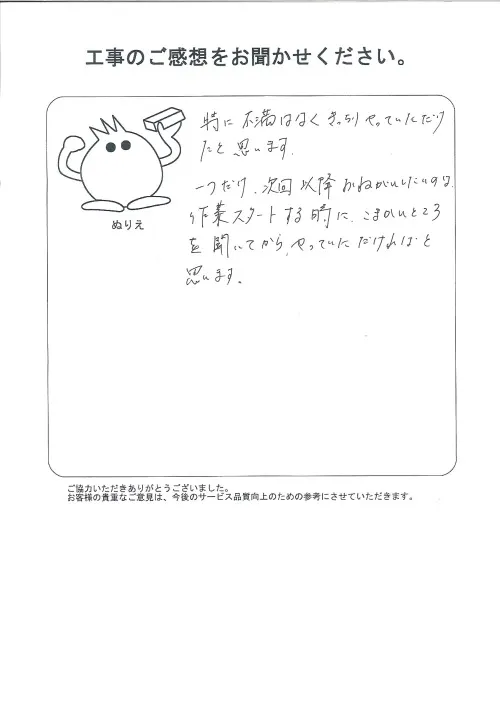 工事のご感想をお聞かせください。
特に不満はなくきっちりやっていただけ
たと思います。
一つだけ、次回以降おねがいしたいのは、
作業スタートする時に、こまかいところ
を聞いてから、やっていただければと
思います。
ぬりえ
ご協力いただきありがとうございました。
お客様の貴重なご意見は、今後のサービス品質向上のための参考にさせていただきます。